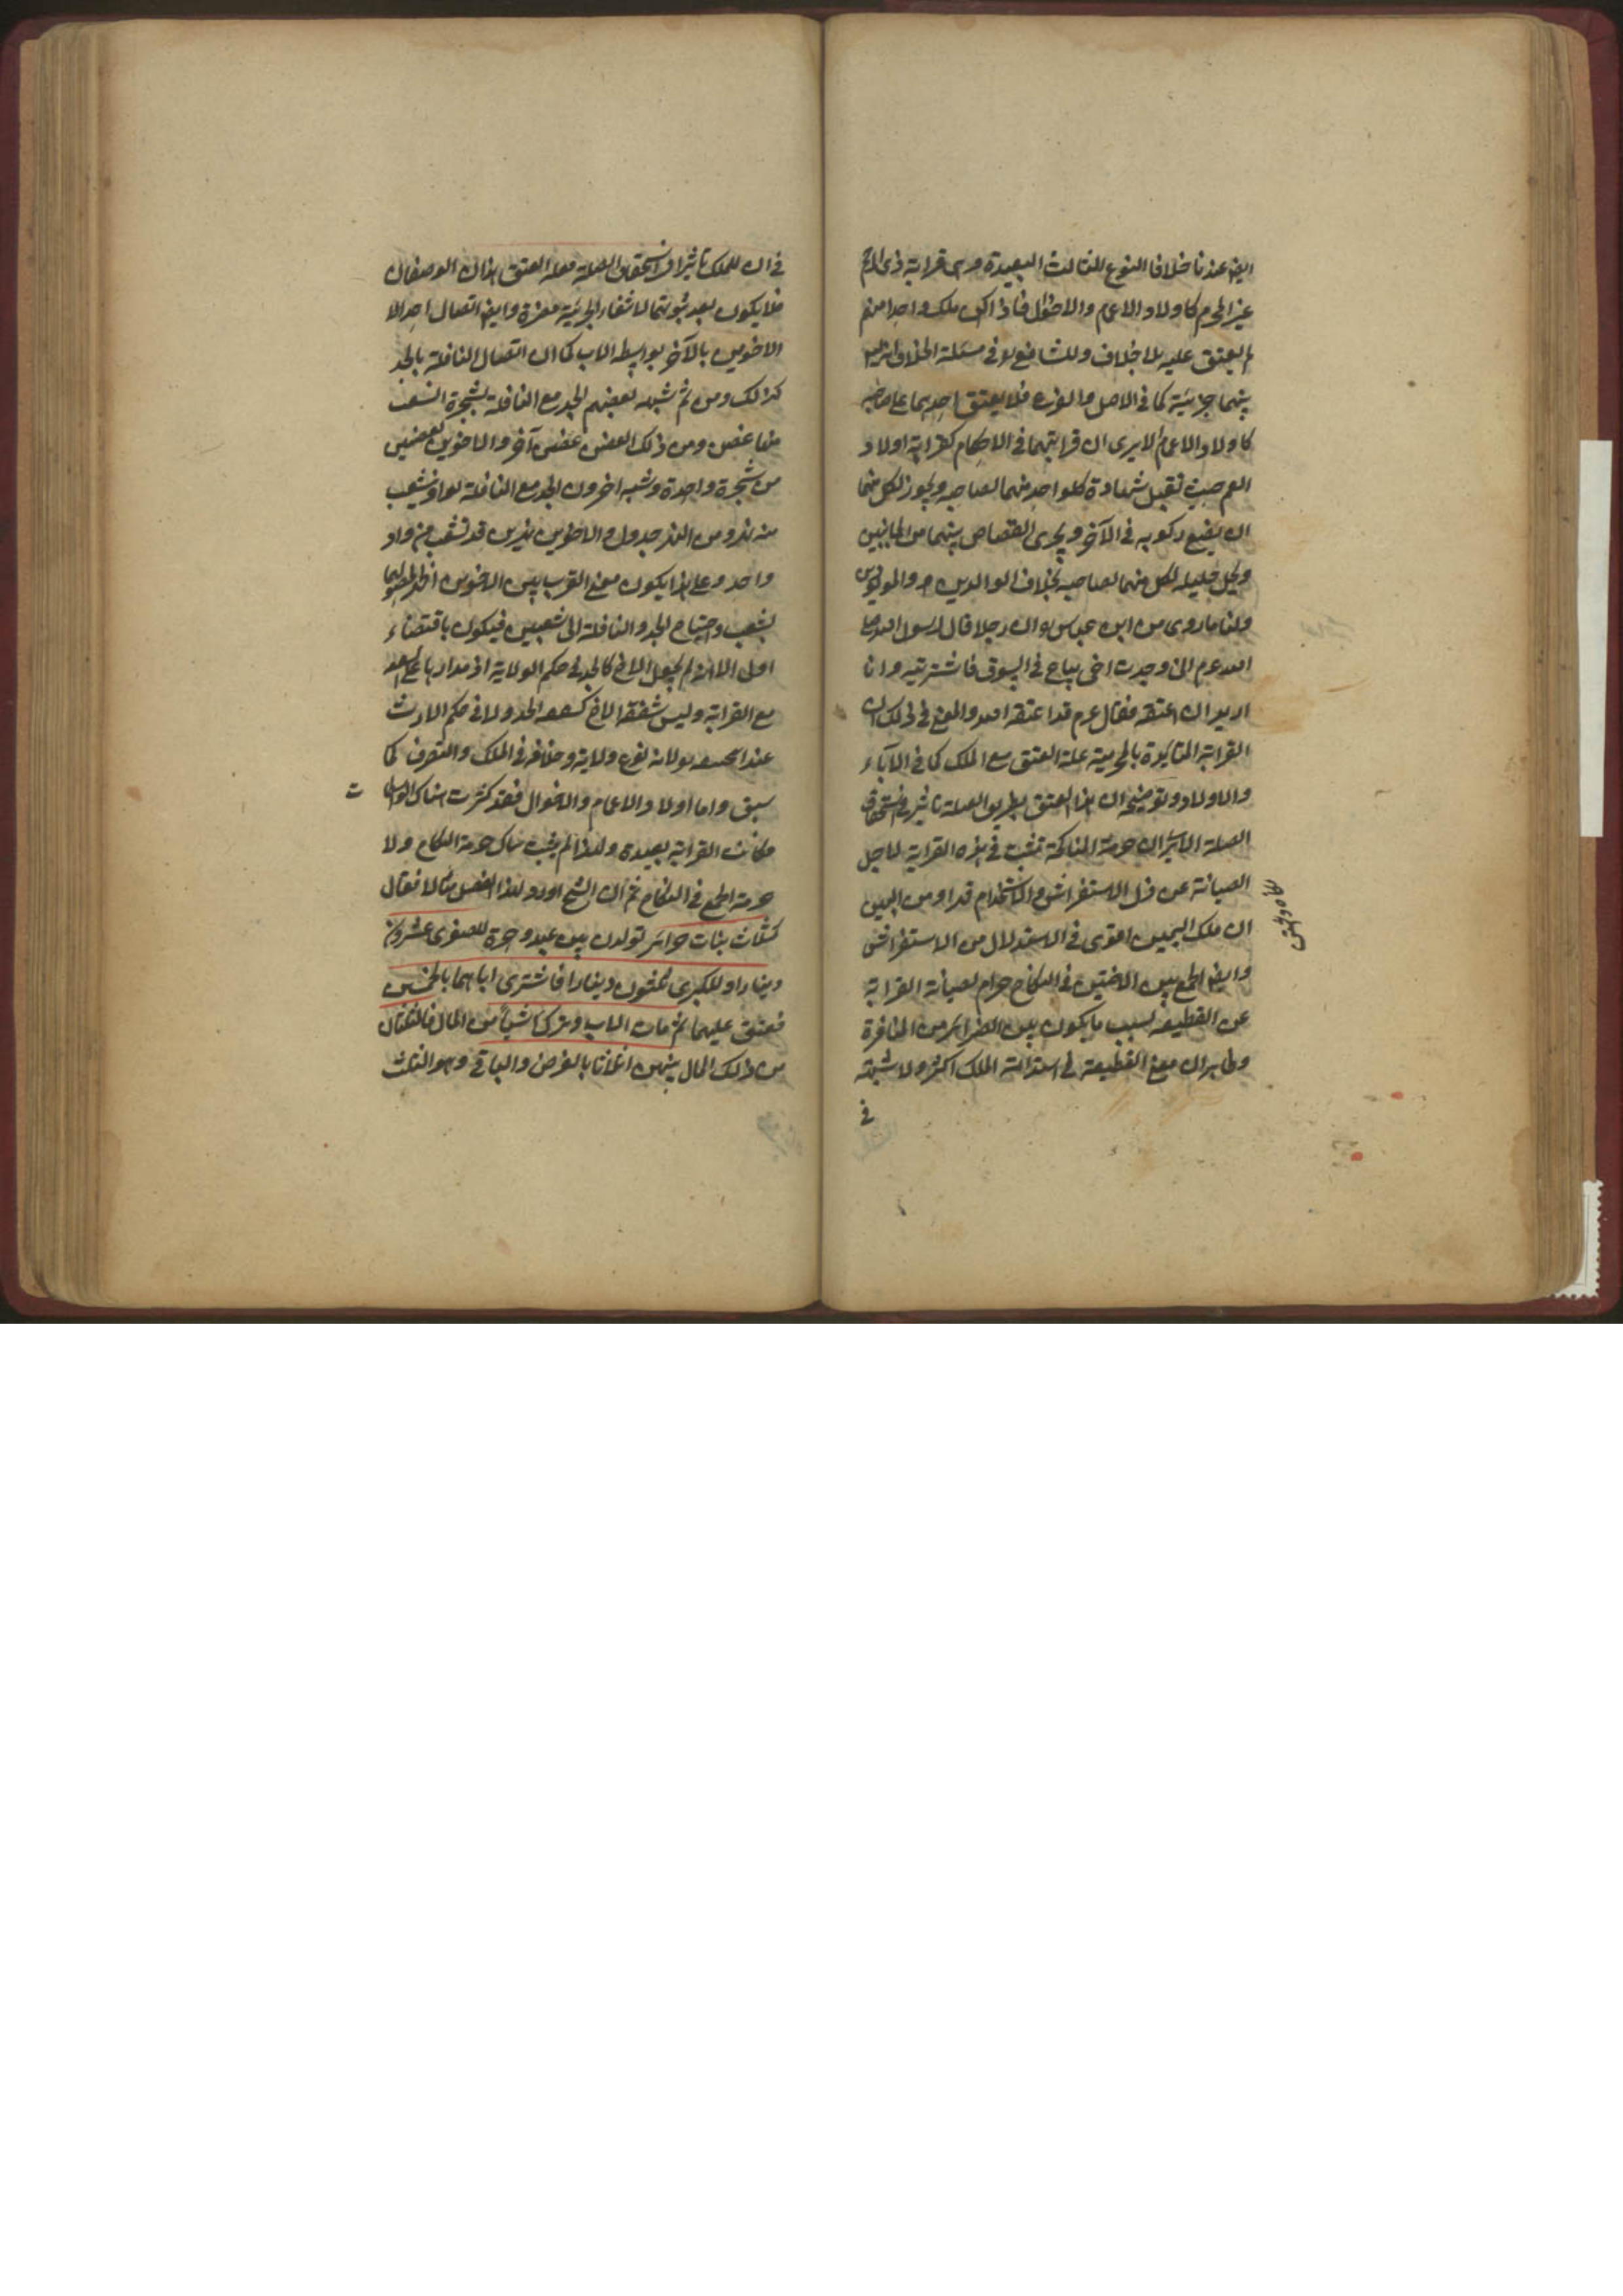 ايضا عندنا خلافا النوع الثالث البعيدة وهى قرابة ذى الرحم
غير المحرم كاولاد الاعمام والاخوال فاذا ملك واحدا منهم
لم يعتق عليه بلا خلاف وللشافعى فى مسئلة الخلاف انه ليس
بينهما جزئية كما فى الاصل والفرع فلا يعتق احدهما على صاحبه
كاولاد الاعمام الا يرى ان قرابتهما فى الاحكام كقرابة اولاد
العم حيث تقبل شهادة كل واحد منهما لصاحبه ويجوز لكل منهما
ان يضع زكوته فى الآخر ويجرى القصاص بينهما من الجانبين
ويحل حليلة لكل منهما لصاحبه بخلاف الوالدين والمولودين
ولنا ما روى من ابن عباس ان رجلا قال لرسول الله صلى
الله عم انى وجدت اخى يباع فى السوق فاشتريته وانا
اريد ان اعتقه فقال عم قد اعتقه الله والمعنى فى ذلك ان
القرابة المتأبدة بالمحرمية علة العتق مع الملك كما فى الآباء
والاولاد وتوضيحه ان هذا العتق بطريق الصلة تأثير فى استحقاق
الصلة الا يرى ان حرمة المناكحة تثبت فى هذه القرابة لاجل
الصيانة عن ذل الاستفراش والاستخدام قهرا ومن البين
ان ملك اليمين اقوى فى الاستذلال من الاستفراش
وايضا الجمع بين الاختين فى النكاح حرام لصيانة القرابة
عن القطيعة بسبب ما يكون بين الضرائر من المنافرة
وظاهر ان معنى القطيعة فى استدامة الملك اكثر ولا شبهة
فى
فى ان للملك تأثيرا فى استحقاق الصلة فعلة العتق هذان الوصفان
فلا يكون بعد ثبوتهما لانتفاء الجزئية مضرة وايضا اتصال احد
الاخوين بالآخر بواسطة الاب كما ان اتصال النافلة بالجد
كذلك ومن ثم شبه بعضهم الجد مع النافلة بشجرة انشعب
منها غصن ومن ذلك الغصن غصن آخر والاخوين بغصنين
من شجرة واحدة وشبه آخرون الجد مع النافلة بواد ينشعب
منه نهر ومن النهر جدول والاخوين بنهرين قد تشعب من واد
واحد وعلى هذا يكون معنى القرب بين الاخوين اظهر
بشعب واحتياج الجد والنافلة الى شعبين فيكون باقتضاء
اولى الا انه لم يجعل الاخ كالجد فى حكم الولاية اذ مدارها على الشفقة
مع القرابة وليس شفقة الاخ كشفقة الجد ولا فى حكم الارث
عند ابى حنيفة لانه نوع ولاية وخلافة فى الملك والتصرف كما
سبق واما اولاد الاعمام والاخوال فقد كثرت هناك الوسائط
فكانت القرابة بعيدة ولهذا لم يثبت هناك حرمة النكاح ولا
حرمة الجمع فى النكاح ثم ان الشيخ اورد لهذا الفصل مثالا فقال
كثلاث بنات حرائر تولدن بين عبد وحرة للصغرى عشرون
دينارا وللكبرى ثلثون دينارا فاشترى اباهما بالخمسين
فعتق عليهما ثم مات الاب وترك شيأ من المال فالثلثان
من ذلك المال بينهن اثلاثا بالفرض والباقى وهو الثلث